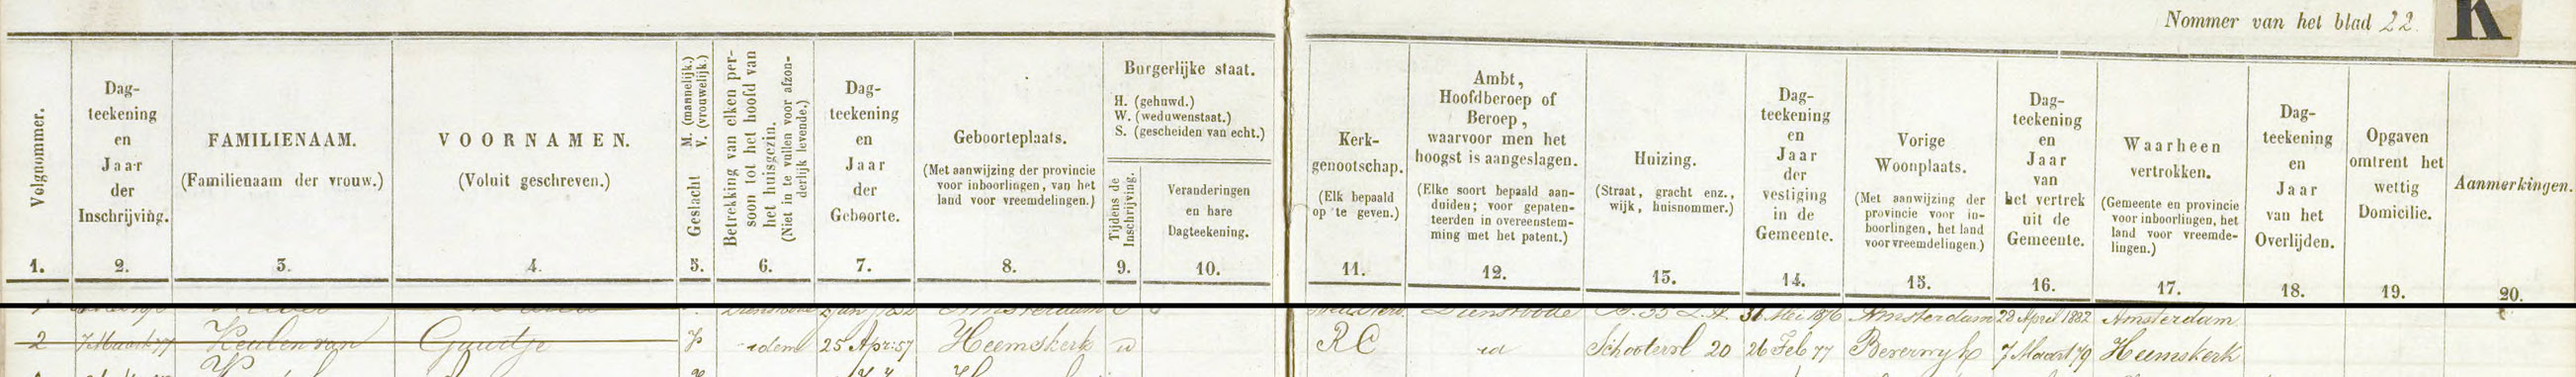 Nommer van het blad 22
K
Volgnommer.
1.
Dag-
teekening
en
Jaar
der
Inschrijving.
2.
FAMILIENAAM.
(Familienaam der vrouw.)
3.
VOORNAMEN.
(Voluit geschreven.)
4.
Geslacht M. (mannelijk.)
V. (vrouwelijk.)
5.
Betrekking van elken per-
soon tot het hoofd van
het huisgezin.
(Niet in te vullen voor afzon-
derlijk levende.)
6.
Dag-
teekening
en
Jaar
der
Geboorte.
7.
Geboorteplaats.
(Met aanwijzing der provincie
voor inboorlingen, van het
land voor vreemdelingen.)
8.
Burgerlijke staat.
H. (gehuwd.)
W. (weduwenstaat.)
S. (gescheiden van echt.)
Tijdens de
Inschrijving.
9.
Veranderingen
en hare
Dagteekening.
10.
Kerk-
genootschap.
(Elk bepaald
op te geven.)
11.
Ambt,
Hoofdberoep of
Beroep,
waarvoor men het
hoogst is aangeslagen.
(Elke soort bepaald aan-
duiden; voor gepaten-
teerden in overeenstem-
ming met het patent.)
12.
Huizing.
(Straat, gracht enz.,
wijk, huisnommer.)
13.
Dag-
teekening
en
Jaar
der
vestiging
in de
Gemeente.
14.
Vorige
Woonplaats.
(Met aanwijzing der
provincie voor in-
boorlingen, het land
voor vreemdelingen.)
15.
Dag-
teekening
en
Jaar
van
het vertrek
uit de
Gemeente.
16.
Waarheen
vertrokken.
(Gemeente en provincie
voor inboorlingen, het
land voor vreemde-
lingen.)
17.
Dag-
teekening
en
Jaar
van het
Overlijden.
18.
Opgaven
omtrent het
wettig
Domicilie.
19.
Aanmerkingen.
20.
Amsterdam Dienstbode 31 Mei 1876 Amsterdam 28 April 1882 Amsterdam
2 7 Maart 77 Keulen van Guurtje V idem 25 Apr: 57 Heemskerk RC id Schootersl 20 26 Feb 77 Beverwyk 7 Maart 79 Heemskerk